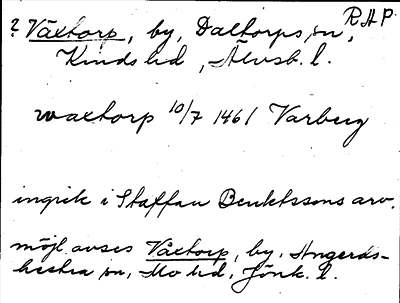 RAP
? Växtorp, by, Daltorps sn,
Kinds hd, Älvsb. l.
waxtorp 10/7 1461 Varberg
ingrik i Staffan Benktssons arv.
möjl. avses Våxtorp, by, Angerds-
hestra sn, Mo hd, Jönk. l.